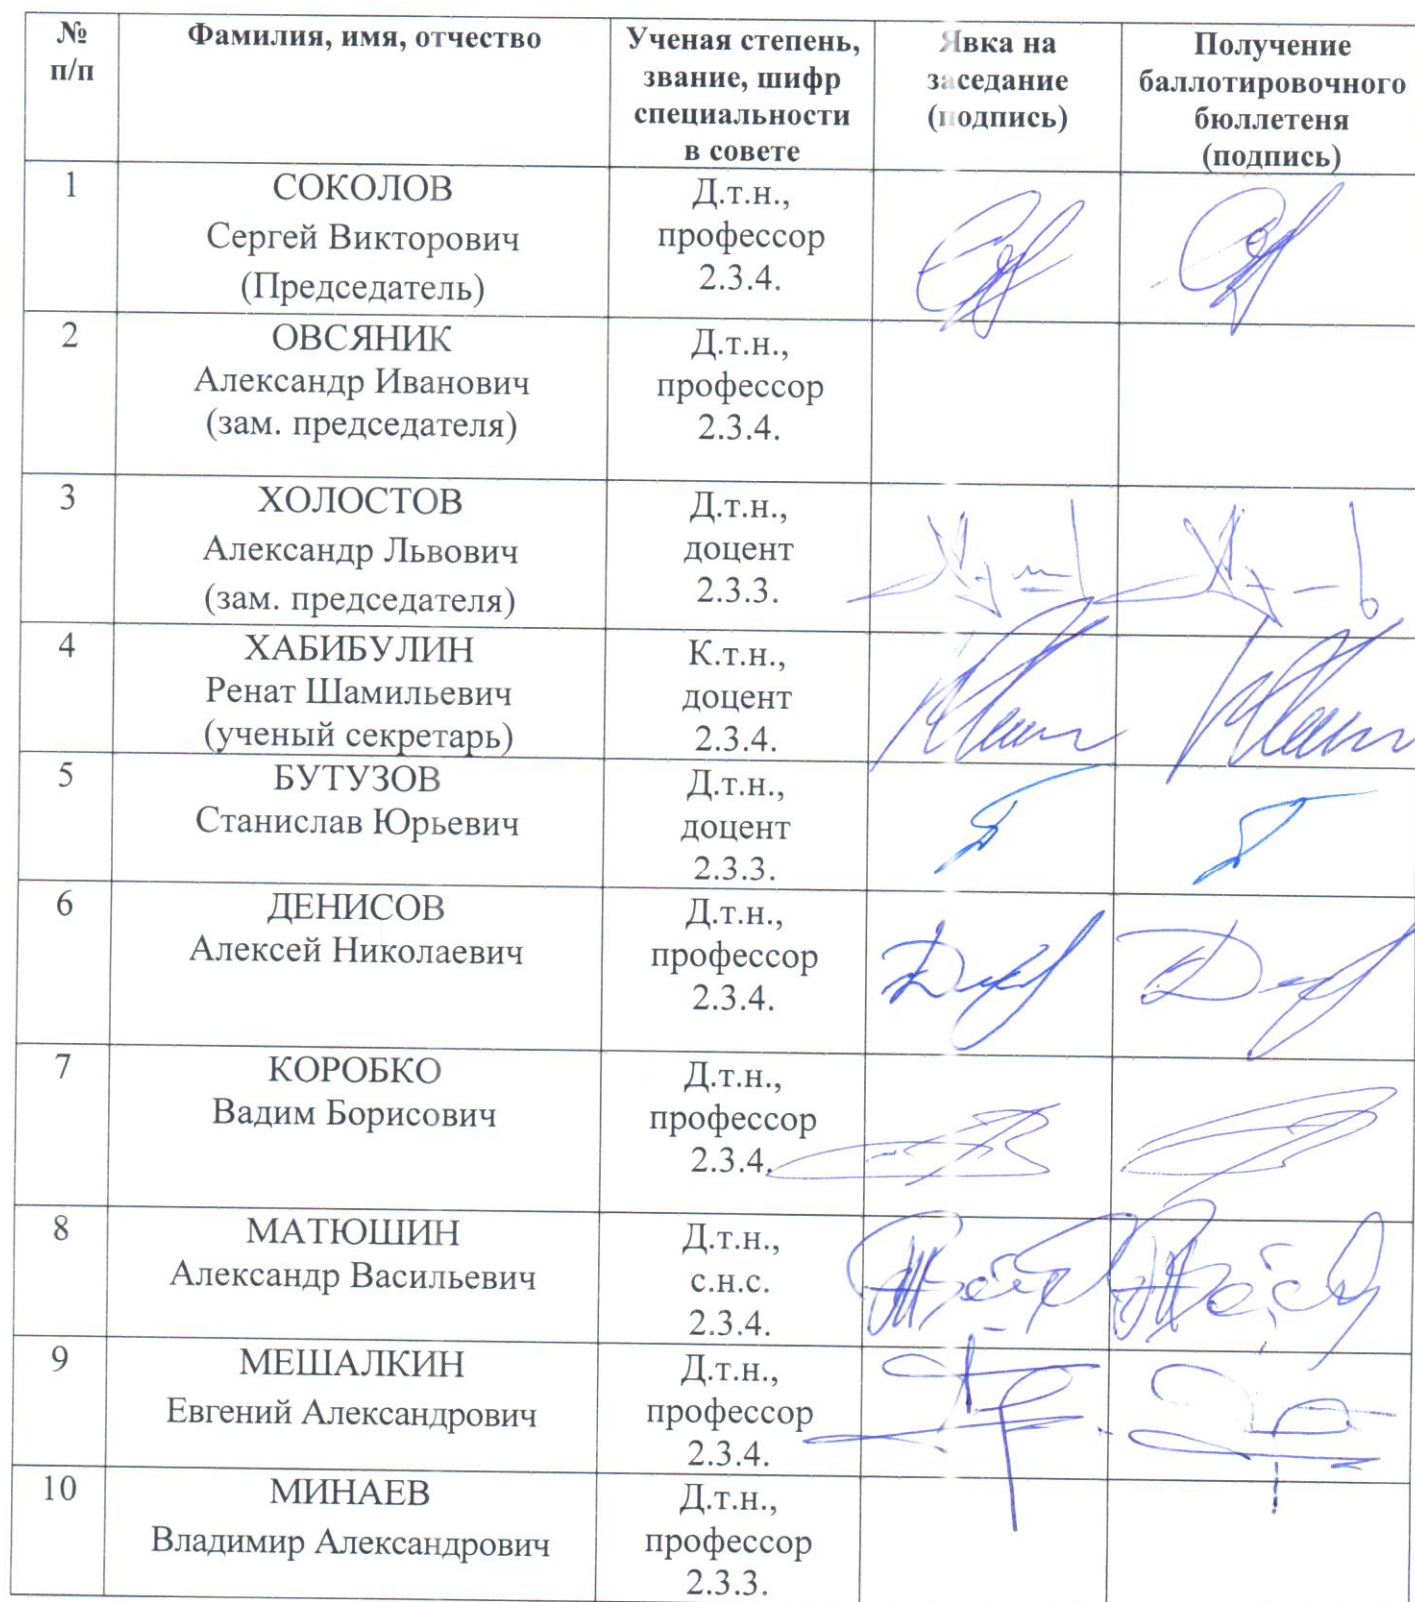 №
п/п
Фамилия, имя, отчество
Ученая степень,
звание, шифр
специальности
в совете
Явка на
заседание
(подпись)
Получение
баллотировочного
бюллетеня
(подпись)
1
СОКОЛОВ
Сергей Викторович
(Председатель)
Д.т.н.,
профессор
2.3.4.
2
ОВСЯНИК
Александр Иванович
(зам. председателя)
Д.т.н.,
профессор
2.3.4.
3
ХОЛОСТОВ
Александр Львович
(зам. председателя)
Д.т.н.,
доцент
2.3.3.
4
ХАБИБУЛИН
Ренат Шамильевич
(ученый секретарь)
К.т.н.,
доцент
2.3.4.
5
БУТУЗОВ
Станислав Юрьевич
Д.т.н.,
доцент
2.3.3.
6
ДЕНИСОВ
Алексей Николаевич
Д.т.н.,
профессор
2.3.4.
7
КОРОБКО
Вадим Борисович
Д.т.н.,
профессор
2.3.4.
8
МАТЮШИН
Александр Васильевич
Д.т.н.,
с.н.с.
2.3.4.
9
МЕШАЛКИН
Евгений Александрович
Д.т.н.,
профессор
2.3.4.
10
МИНАЕВ
Владимир Александрович
Д.т.н.,
профессор
2.3.3.